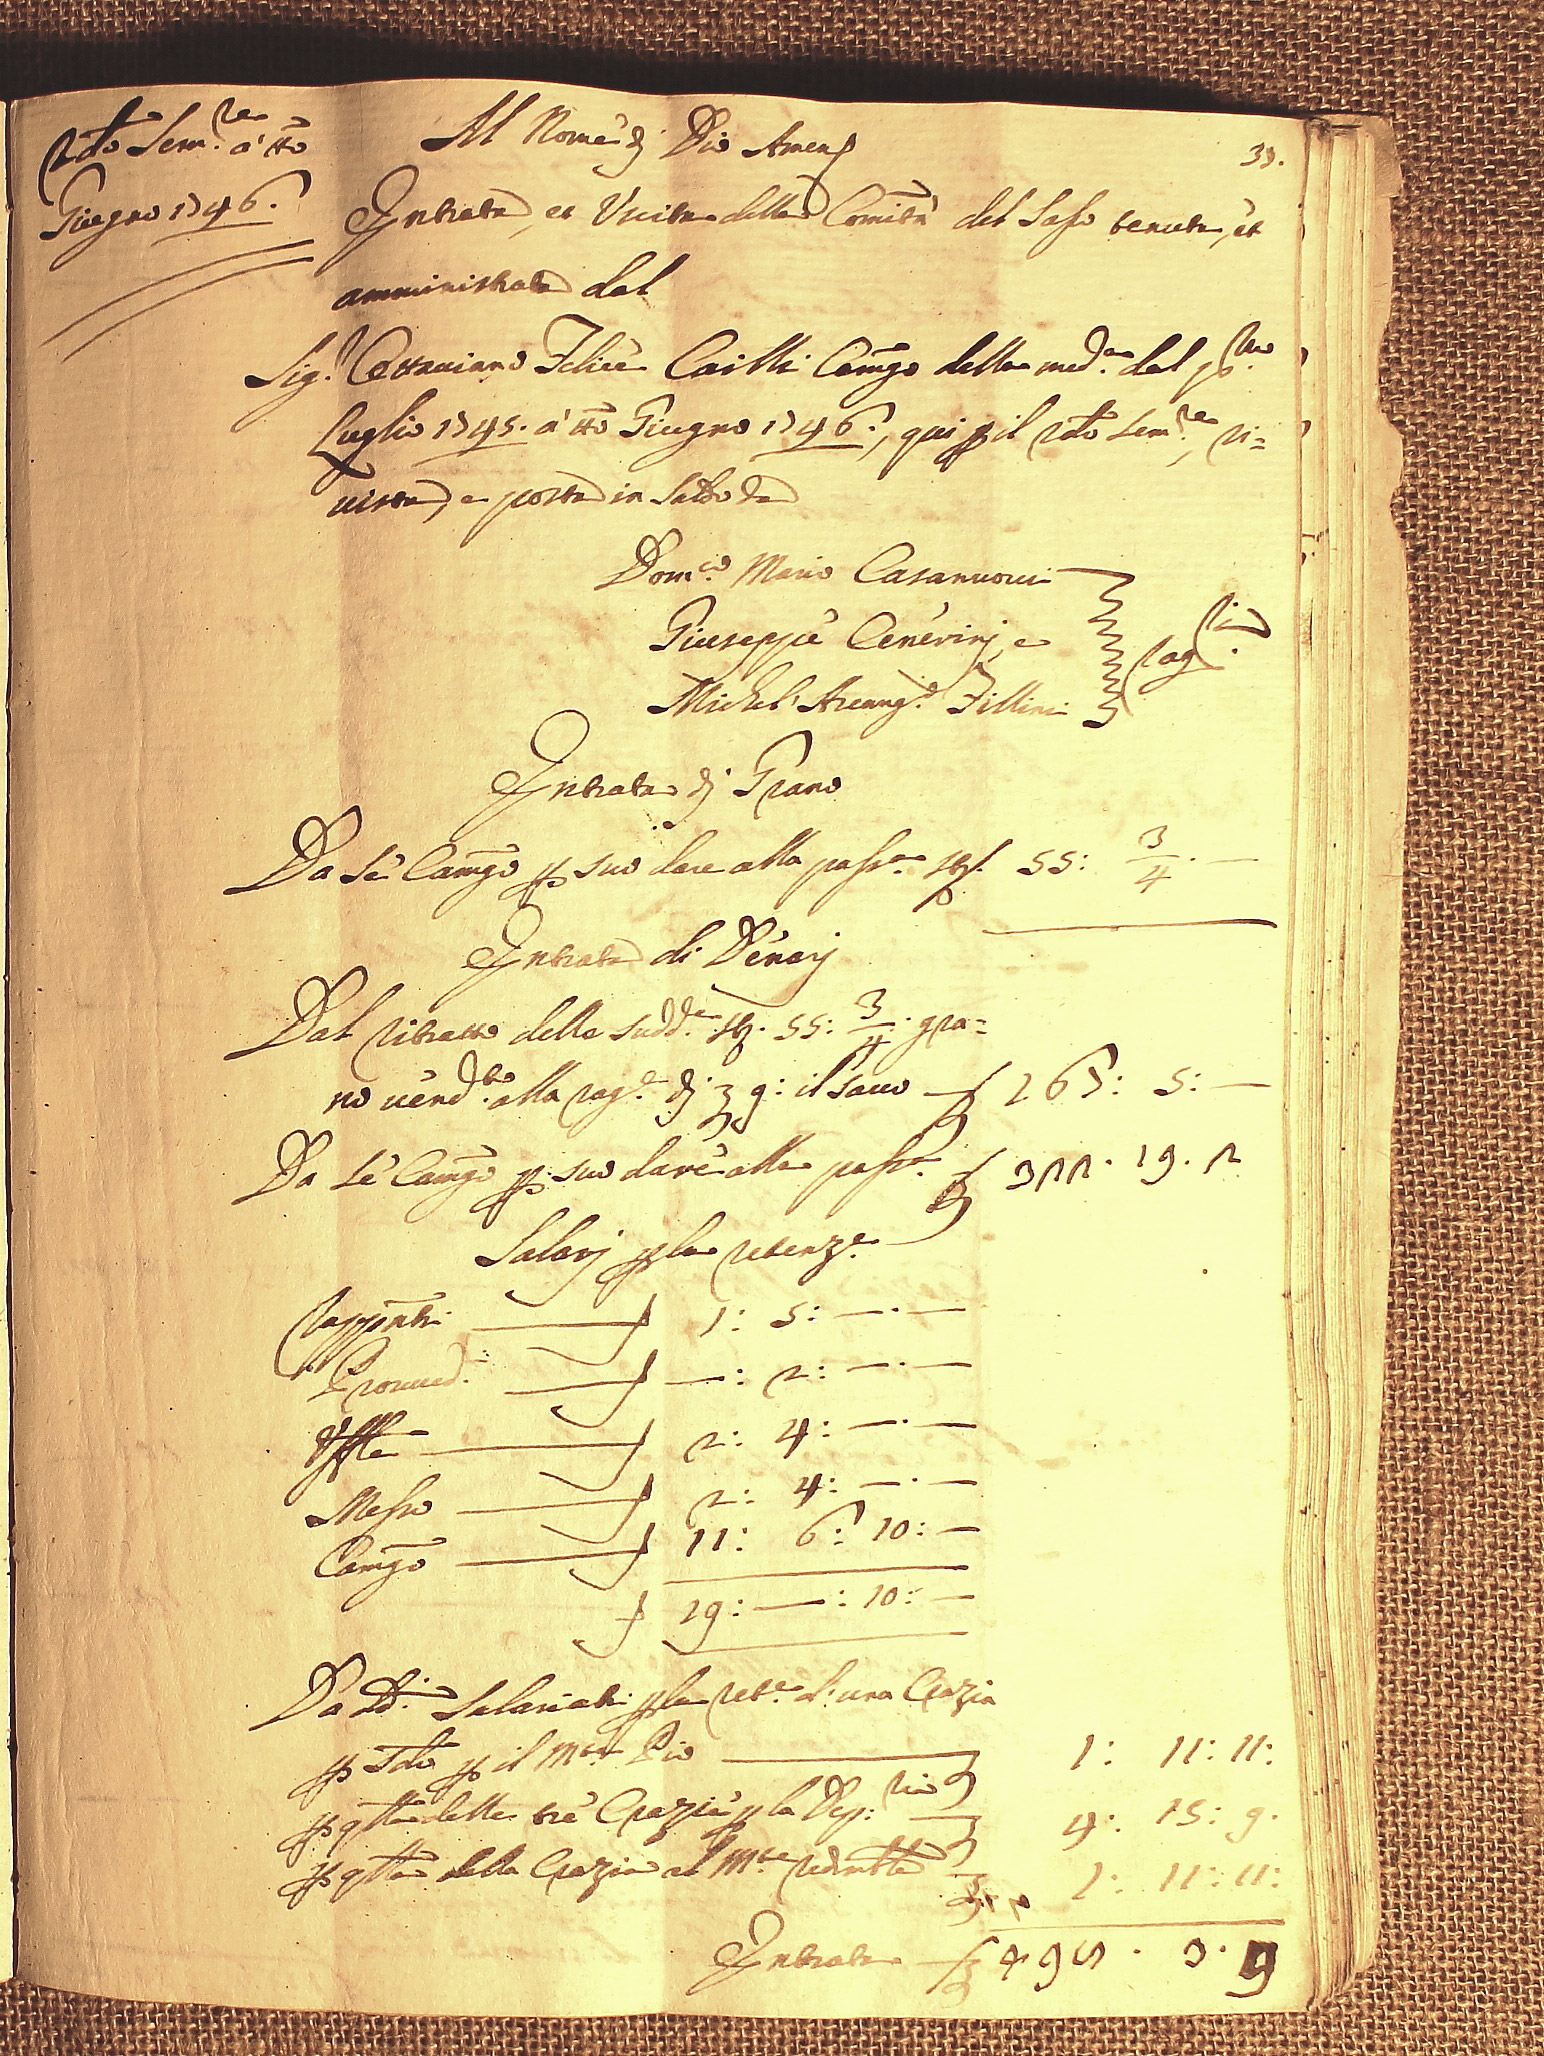 2do Sem.re à tto
Giugno 1746.
39.
Al Nome di Dio Amen
Intrata, et Uscita della Com̃tà del Sasso tenuta, et
amministrata dal
Sig.r Ottaviano Felice Cailli Cam̃go della med.a dal p.mo
Luglio 1745. à tto Giugno 1746., qui p il 2do Sem.re, ri=
vista, e posta in Saldo da
Dom.co Mario Casanuovi
Giuseppe Cenerinj, e
Michel' Arcang.o Fillini
rag.ri
Intrata dj Grano
Da Sè Cam̃go p suo dare alla pass.a 55: 3/4. —
Intrata di Denarj
Dal ritratto delle sudd.e 55: 3/4. gra=
no vend.to alla rag.e dj 9: il sacco 167: 5: —
Da Sè Cam̃go p suo dare alla pass.a 322. 19. 2
Salarj p la retenz.e
Rapp̃nti 1: 5: —. —
Proved. —: 2: —. —
Uffle 2: 4: —. —
Messo 2: 4: —. —
Cam̃go 11: 6: 10: —
19: —: 10: —
Da dd.i Salariati p la ret.e d'una Crazia
p sdo p il M.te Pio 1: 11: 11:
p qlla delle trè Crazie p la Dep: 4: 15: 9.
p qlla della Crazia al M.te redimble 1: 11: 11:
Intrata 495. 3. 9